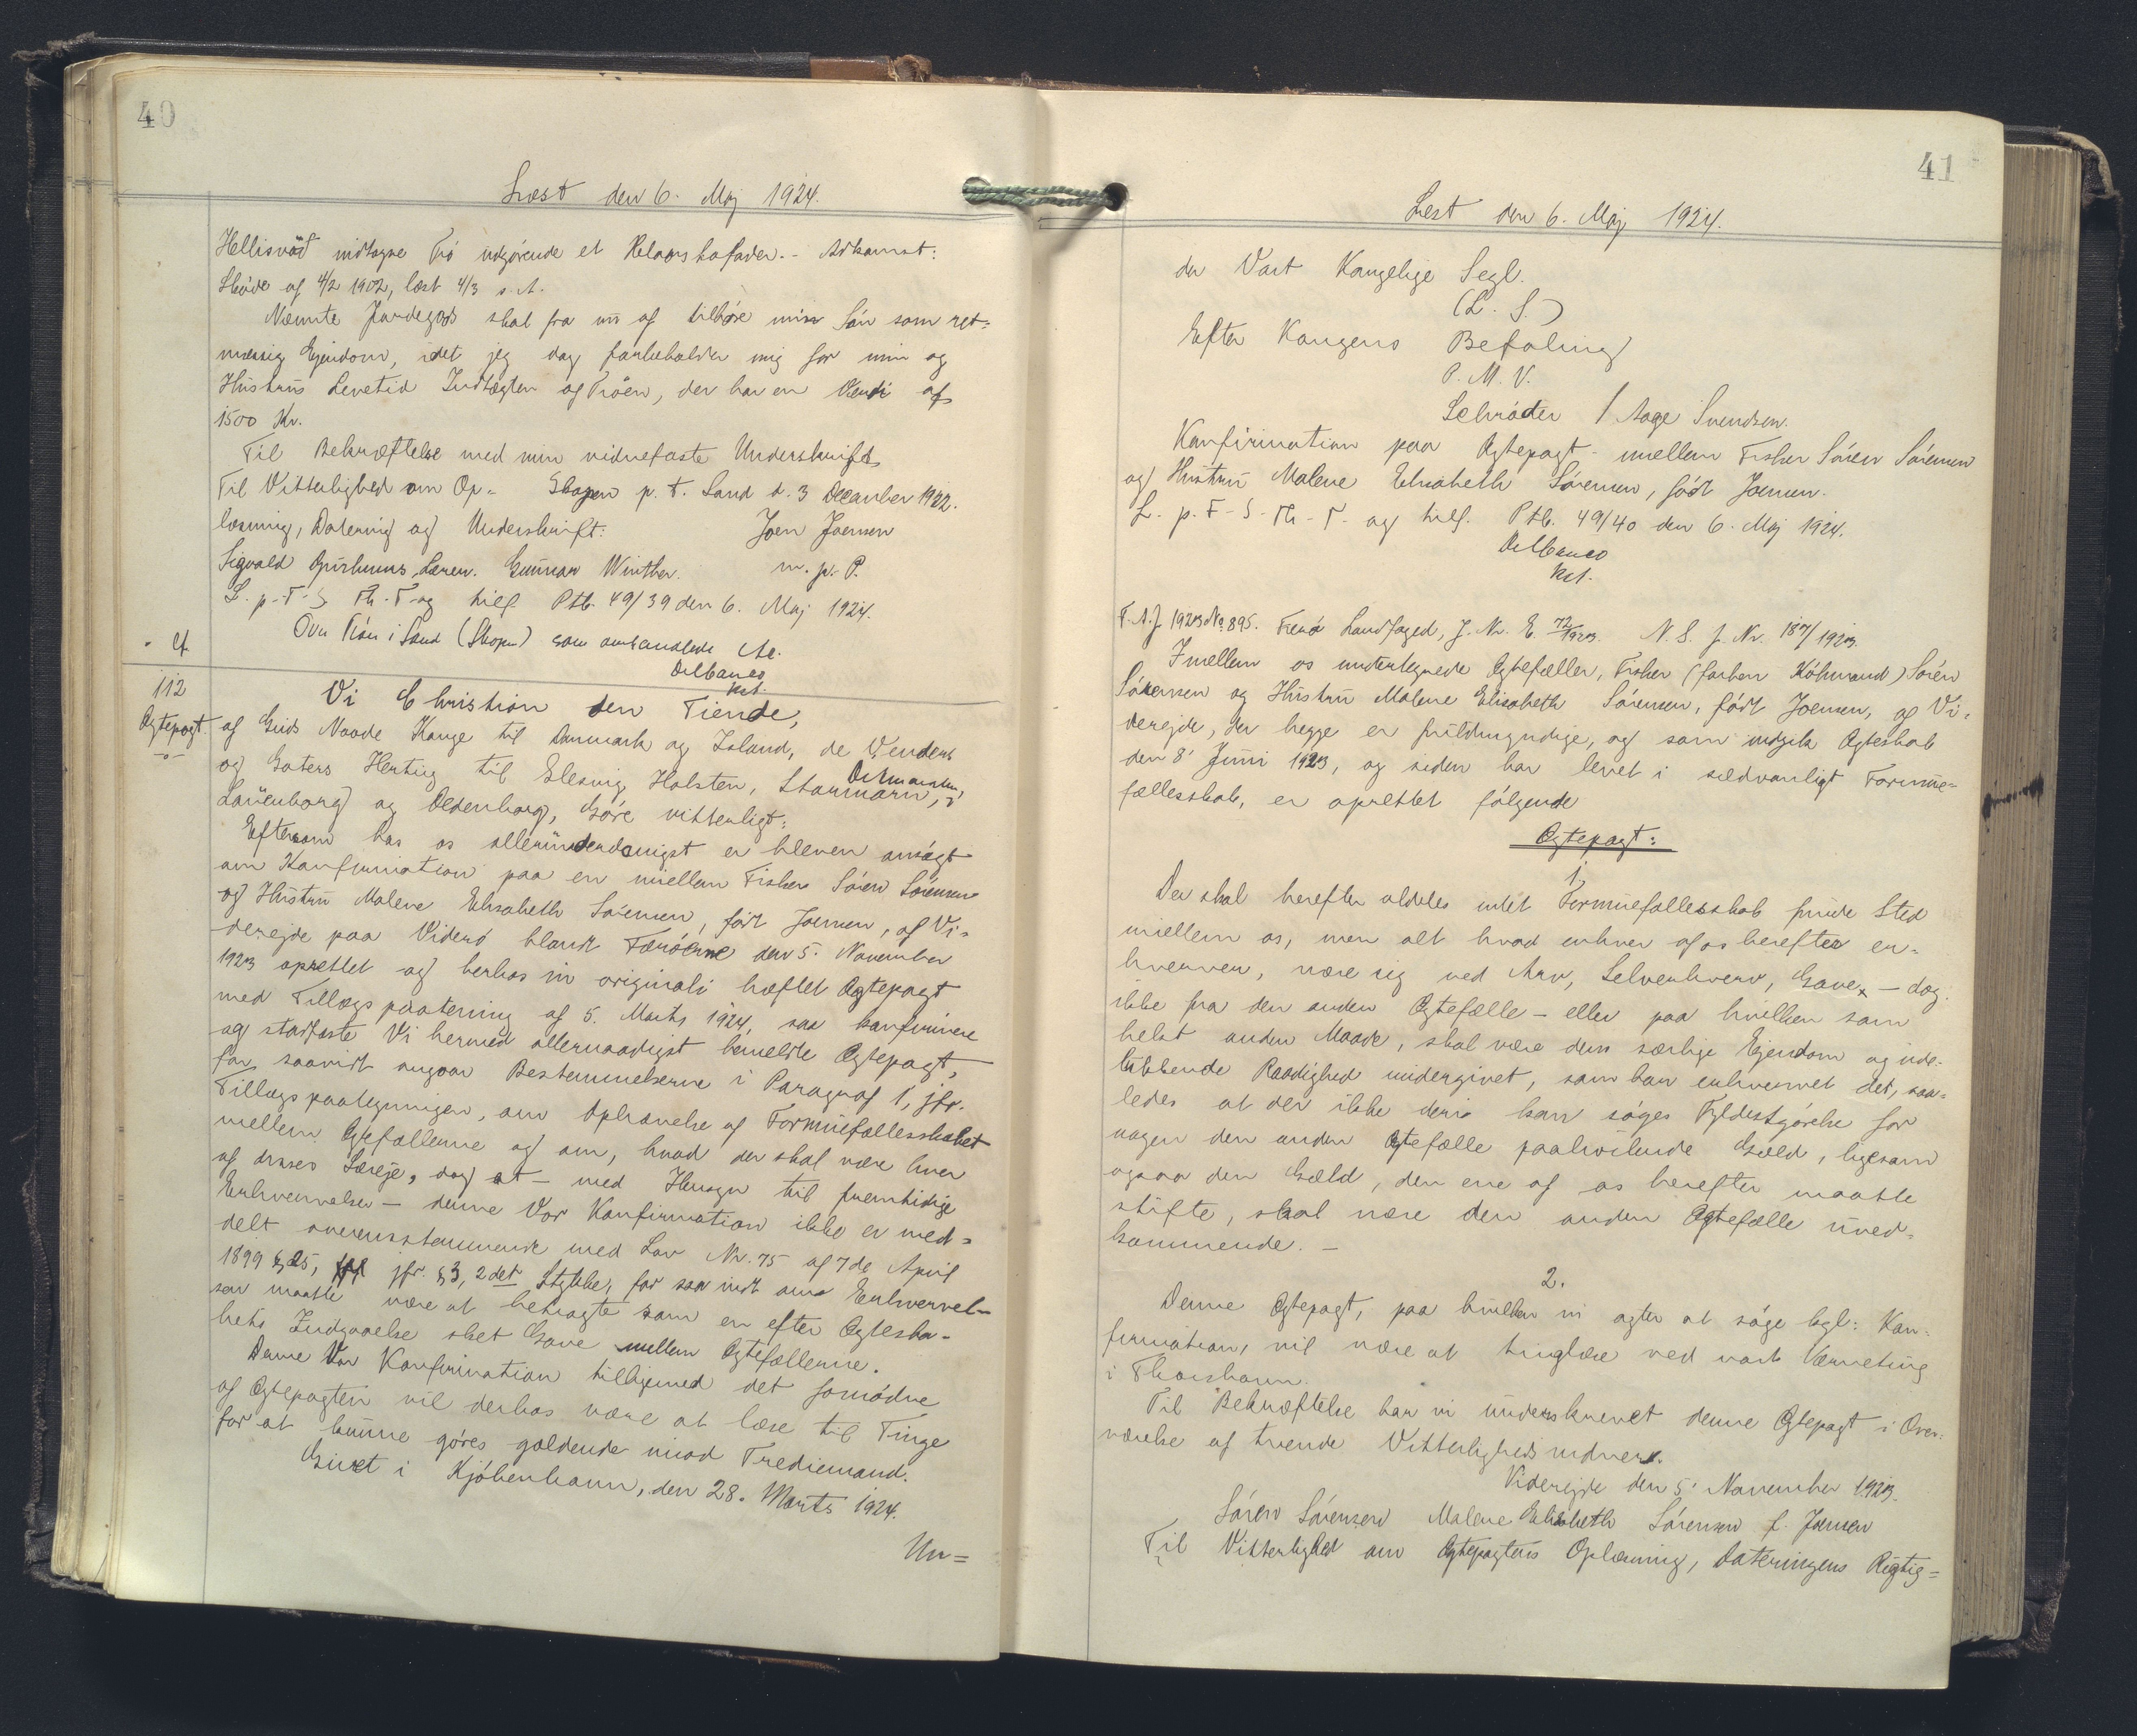 40
Læst den 6. Maj 1924.
Hellisvád indtagne Tró udgörende et Relaarshafader. - Adkomst:
Sköde af 4/2 1902, læst 4/3 s. A.
Nævnte Jordegods skal fra nu af tilhøre min Sön som ret-
mæssig Ejendom, idet jeg dog forbeholder mig for min og
Hustrus Levetid Indtægten af Tróen, der har en Værdi af
1500 Kr.
Til Bekræftelse med min vidnefaste Underskrift
Til Vitterlighed om Op- Skopen p. t. Sand d. 3 December 1922.
læsning, Datering og Underskrift: Joen Joensen
Sigvald Larsen. Gunnar Winther. m. p. P.
L. p. F- S- Th- T- og tilf. Ptb. 49/39 den 6. Maj 1924.
Over Tróen i Sand (Skopen) som omhandlede Ae.
Delbanco
Kst.
112
Ægtepagt.
Vi Christian den Tiende,
af Guds Naade Konge til Danmark og Island, de Venders
og Goters Hertug til Slesvig, Holsten, Stormarn, Ditmarsken,
Lauenborg og Oldenborg, Göre vitterligt:
Eftersom hos os allerunderdanigst er bleven ansögt
om Konfirmation paa en mellem Fisker Sören Sörensen
og Hustru Malene Elisabeth Sörensen, född Joensen, af Vi-
derejde paa Viderö blandt Færöerne den 5. November
1923 oprettet og herhos in originali hæftet Ægtepagt
med Tillægspaategning af 5. Marts 1924, saa konfirmere
og stadfæste Vi hermed allernaadigst bemeldte Ægtepagt,
for saavidt angaar Bestemmelserne i Paragraf 1, jfr.
Tillægspaategningen, om Ophævelse af Formuefællesskabet
mellem Ægtefællerne og om, hvad der skal være hver
af deres Særeje, dog at - med Hensyn til fremtidige
Erhvervelser - denne Vor Konfirmation ikke er med-
delt overensstemmende med Lov Nr. 75 af 7de April
1899 § 25, jfr. § 3, 2det Stykke, for saa vidt som Erhvervel-
sen maatte være at betragte som en efter Ægteska-
bets Indgaaelse sket Gave mellem Ægtefællerne.
Denne Vor Konfirmation tillige med det fornödne
af Ægtepagten vil derhos være at læse til Tinge
for at kunne göres gældende imod Trediemand.
Givet i Kjöbenhavn, den 28. Marts 1924.
Un=
41
Læst den 6. Maj 1924.
der Vort Kongelige Segl.
(L. S.)
Efter Kongens Befaling
P. M. V.
Schröder / Aage Svendsen.
Konfirmation paa Ægtepagt mellem Fisker Sören Sörensen
og Hustru Malene Elisabeth Sörensen, född Joensen.
L. p. F- S- Th- T- og tilf. Ptb. 49/40 den 6. Maj 1924.
Delbanco
Kst.
F. A. J 1923 No 895. Færö Landfoged, J. Nr. E. 72/1923. N. S. J. Nr. 187/1923.
Imellem os undertegnede Ægtefæller, Fisker (forhen Köbmand) Sören
Sörensen og Hustru Malene Elisabeth Sörensen, född Joensen, af Vi-
derejde, der begge er fuldmyndige, og som indgik Ægteskab
den 8' Juni 1923, og siden har levet i sædvanligt Formue-
fællesskab, er oprettet fölgende
Ægtepagt:
1.
Der skal herefter aldeles intet Formuefællesskab finde Sted
imellem os, men alt hvad enhver af os herefter er-
hverver, være sig ved Arv, Selverhverv, Gave, - dog
ikke fra den anden Ægtefælle - eller paa hvilken som
helst anden Maade, skal være dens særlige Ejendom og ude-
lukkende Raadighed undergivet, som har erhvervet det, saa-
ledes at der ikke deri kan söges Fyldestgörelse for
nogen den anden Ægtefælle paahvilende Gæld, ligesom
ogsaa den Gæld, den ene af os herefter maatte
stifte, skal være den anden Ægtefælle uved-
kommende. -
2.
Denne Ægtepagt, paa hvilken vi agter at söge kgl: Kon-
firmation, vil være at tinglæse ved vort Værneting
i Thorshavn.
Til Bekræftelse har vi underskrevet denne Ægtepagt i Over-
værelse af tvende Vitterlighedsvidner.
Viderejde den 5' November 1923.
Sören Sörensen Malene Elisabeth Sörensen f. Joensen
Til Vitterlighed om Ægtepagtens Oplæsning, Dateringens Rigtig=